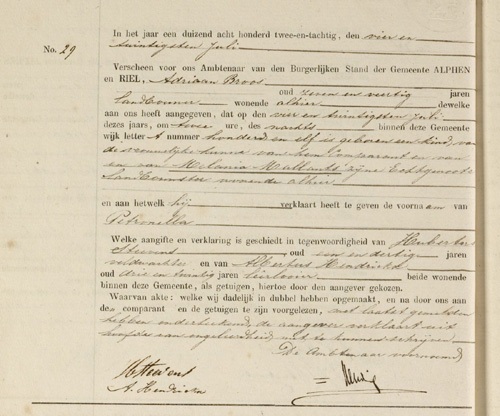 In het jaar een duizend acht honderd twee-en-tachtig, den vier en
twintigsten Juli
No. 29
Verscheen voor ons Ambtenaar van den Burgerlijken Stand der Gemeente ALPHEN
en RIEL, Adriaan Broos
oud zeven en veertig jaren
landbouwer wonende alhier dewelke
aan ons heeft aangegeven, dat op den vier en twintigsten Juli
dezes jaars, om twee ure, des nachts binnen deze Gemeente
wijk letter A nummer honderd en elf is geboren een kind, van
de vrouwelijke kunne van hem Comparant en van
en van Melania Mallants zijne Echtgenoote
landbouwster wonende alhier
en aan hetwelk hij verklaart heeft te geven de voornaam van
Petronella
Welke aangifte en verklaring is geschied in tegenwoordigheid van Hubertus
Stevens oud een en dertig jaren
veldwachter en van Albertus Hendrickx
oud drie en twintig jaren beide wonende
binnen deze Gemeente, als getuigen, hiertoe door den aangever gekozen.
Waarvan akte: welke wij dadelijk in dubbel hebben opgemaakt, en na door ons aan
de comparant en de getuigen te zijn voorgelezen, met laatst gemelden
hebben onderteekend, de aangever verklaart uit
hoofde van ongeleerdheid niet te kunnen schrijven
De Ambtenaar voornoemd
H Stevens
A. Hendrickx